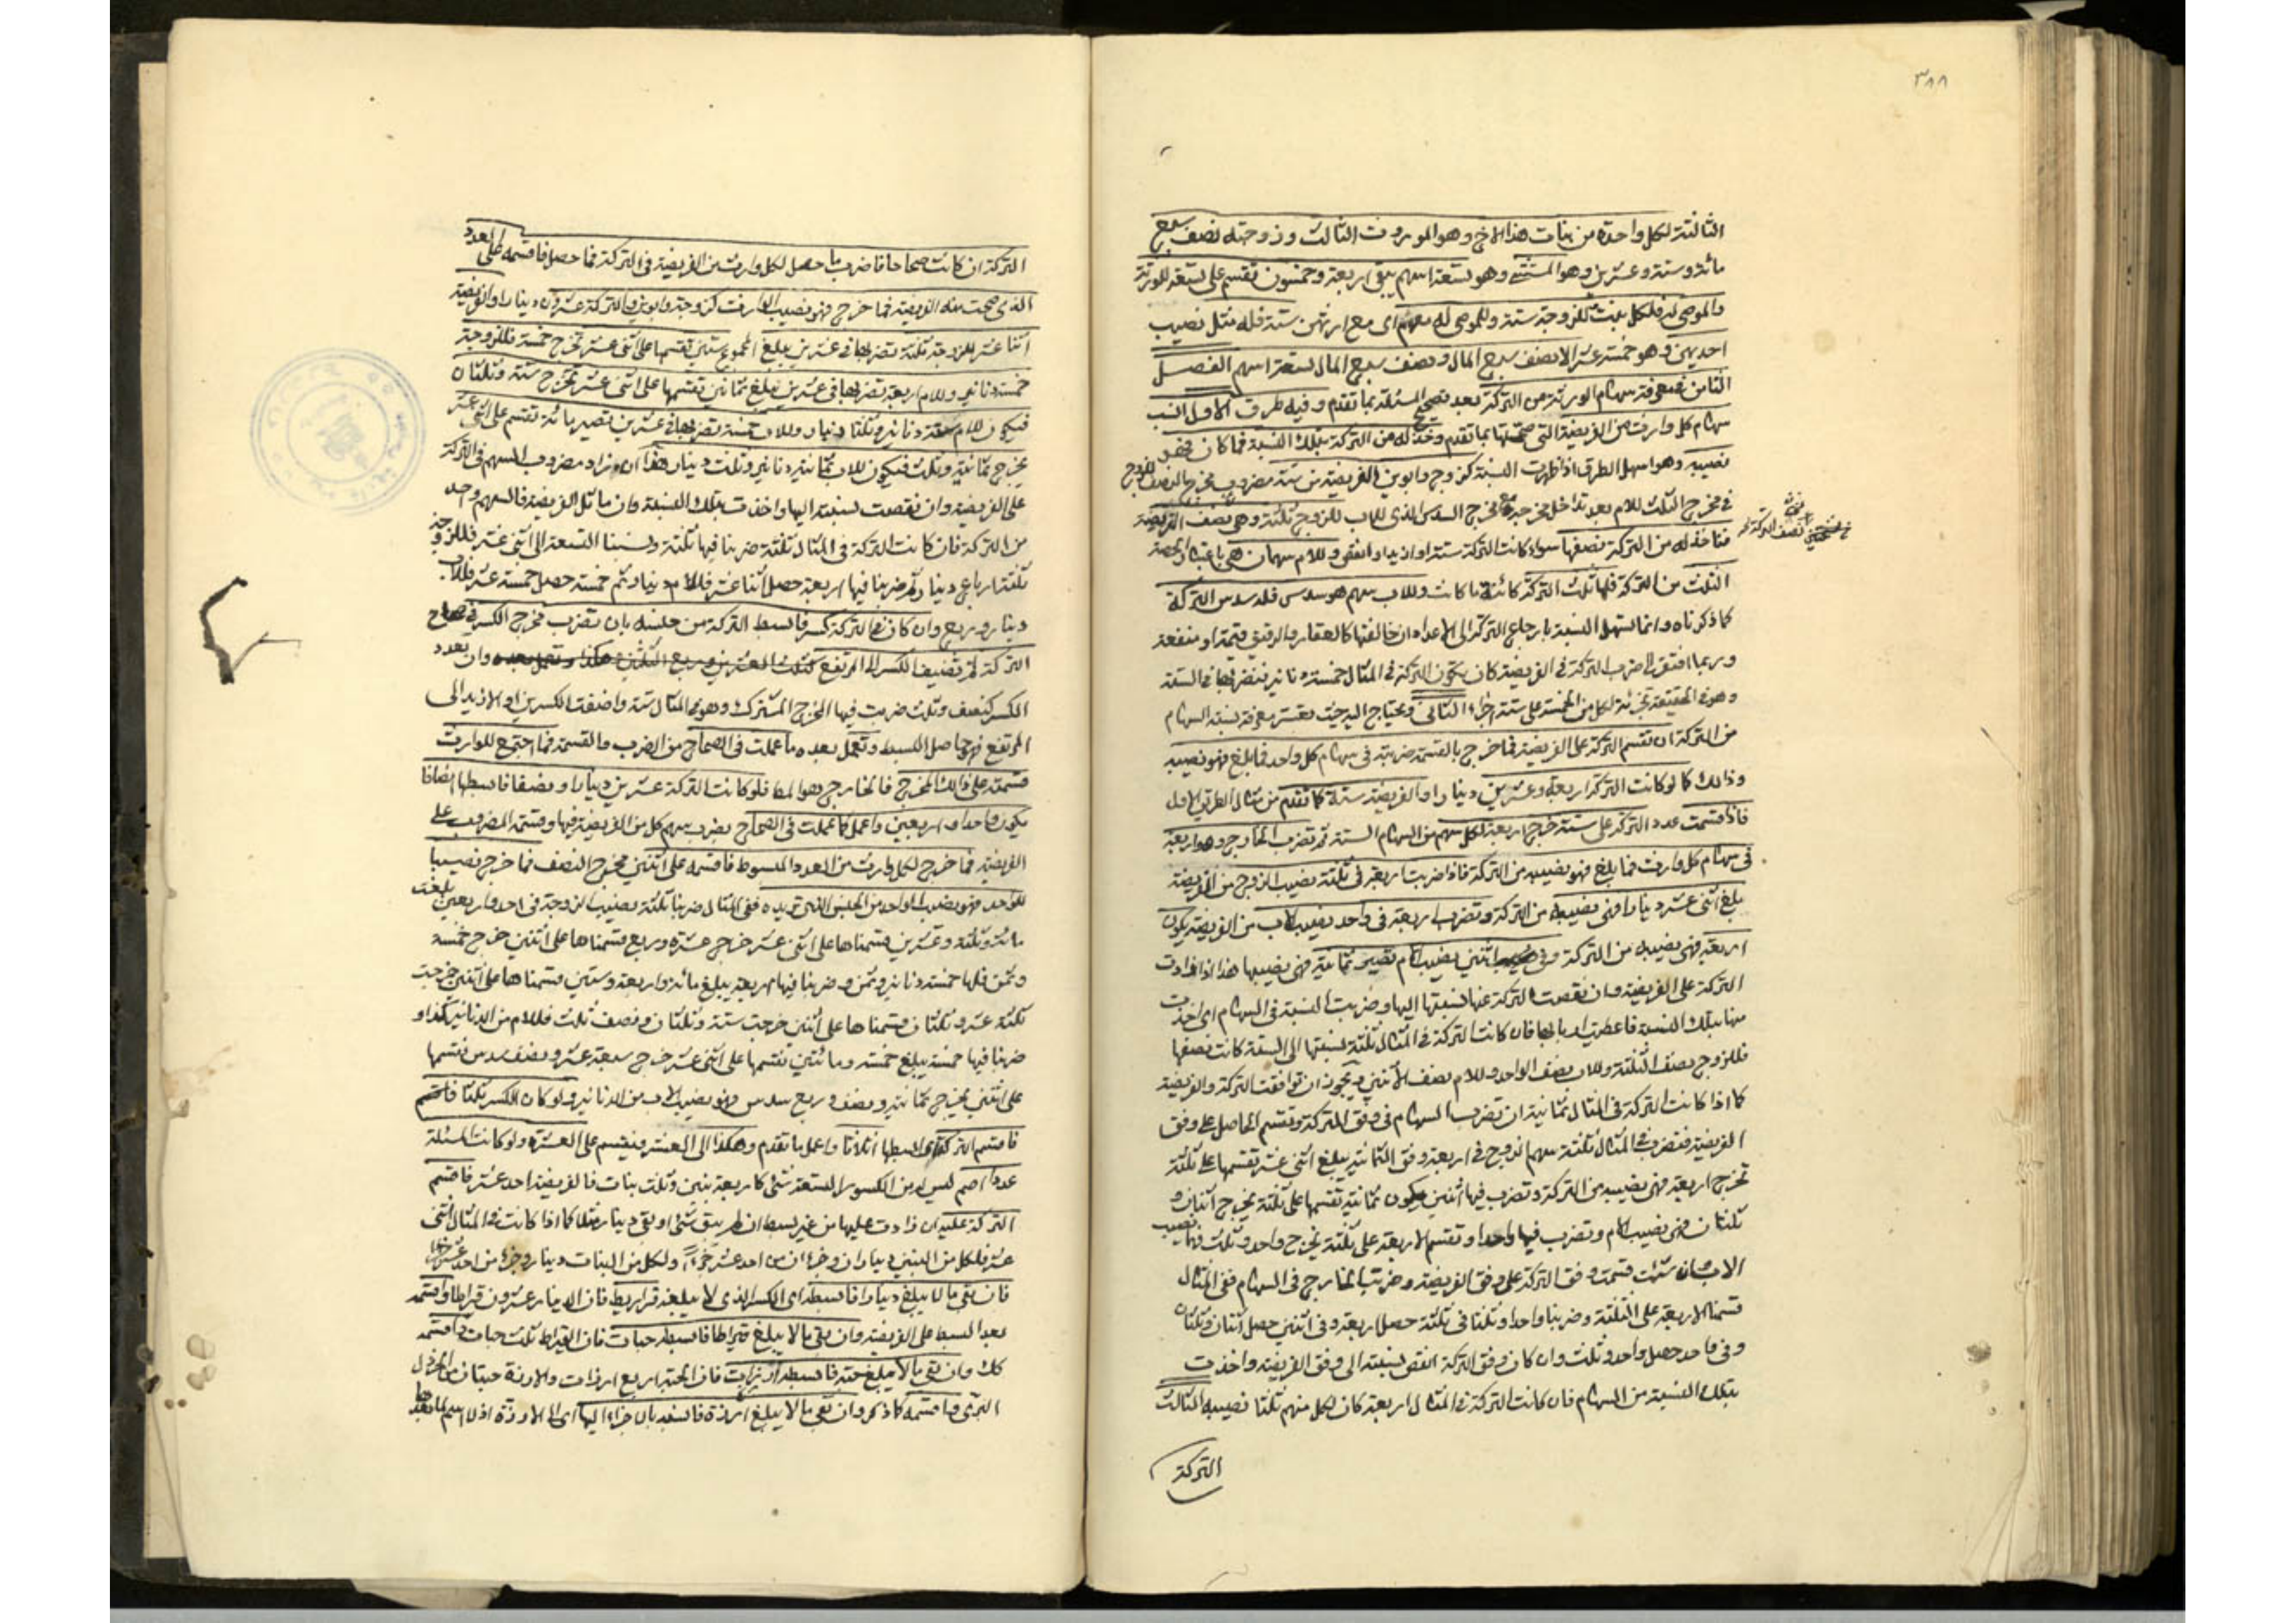 ٣٨٨
الثالثة لكل واحدة من بنات هذا الاخ وهو الموروث الثالث وزوجته نصف سبع
مائة وستة وعشرين وهو المستثنى وهو تسعة اسهم يبقى اربعة وخمسون تقسم على تسعة للورثة
والموصى له فلكل بنت للزوجة ستة وللموصى له سهم اى مع ارثهن ستة فله مثل نصيب
احديهن وهو خمسة عشر الا نصف سبع المال ونصف سبع المال تسعة اسهم الفصل
الثامن فى معرفة سهام الورثة من التركة بعد تصحيح المسئلة بما تقدم وفيه طرق الاول انسب
سهام كل وارث من الفريضة التى صححتها بما تقدم وخذ له من التركة بتلك النسبة فما كان فهو
نصيبه وهو اسهل الطرق اذا ظهرت النسبة كزوج وابوين الفريضة من ستة مضروب مخرج النصف للزوج
فى مخرج الثلث للام بعد تداخل مخرجه مع مخرج السدس الذى للاب للزوج ثلثة وهى نصف الفريضة
فتاخذ له من التركة نصفها سواء كانت التركة ستة او ازيد او انقص وللام سهمان هى باعتبار الحصة
الثلث من التركة فلها ثلث التركة كائنة ما كانت وللاب سهم هو سدس فله سدس التركة
كما ذكرناه وانما تسهل النسبة بارجاع التركة الى الاعداد ان خالفتها كالعقار والرقيق قيمة او منفعة
وربما افتقر الى ضرب التركة فى الفريضة كان يكون التركة فى المثال خمسة دنانير فتضربها فى الستة
وهو فى الحقيقة تجزئة لكل من الخمسة على ستة اجزاء الثانى ويحتاج اليه حيث تعسر معرفة نسبة السهام
من التركة ان تقسم التركة على الفريضة فما خرج بالقسمة ضربته فى سهام كل واحد فما بلغ فهو نصيبه
وذلك كما لو كانت التركة اربعة وعشرين دينارا والفريضة ستة كما تقدم من مثال الطريق الاول
فاذا قسمت عدد التركة على ستة خرج اربعة لكل سهم من السهام الستة ثم تضرب الخارج وهو اربعة
فى سهام كل وارث فما بلغ فهو نصيبه من التركة فاذا ضربت اربعة فى ثلثة نصيب الزوج من الفريضة
بلغ اثنى عشر دينارا فهى نصيبه من التركة وتضرب اربعة فى واحد نصيب الاب من الفريضة يكون
اربعة فهى نصيبه من التركة وفى اثنين نصيب الام تصير ثمانية فهى نصيبها هذا اذا زادت
التركة على الفريضة وان نقصت التركة عنها نسبتها اليها وضربت النسبة فى السهام اى اخذت
منها بتلك النسبة فاعطيت اربابها فان كانت التركة فى المثال ثلثة نسبتها الى الستة كانت نصفها
فللزوج نصف الثلثة وللاب نصف الواحد وللام نصف الاثنين ويجوز ان توافقت التركة والفريضة
كما اذا كانت التركة فى المثال ثمانية ان تضرب السهام فى وفق التركة وتقسم الحاصل على وفق
الفريضة فتضرب فى المثال ثلثة سهم الزوج فى اربعة وفق الثمانية يبلغ اثنى عشر تقسمها على ثلثة
تخرج اربعة فهى نصيبه من التركة وتضرب فيها اثنين يكون ثمانية تقسمها على ثلثة يخرج اثنان و
ثلثان فهى نصيب الام وتضرب فيها واحدا وتقسم الاربعة على ثلثة يخرج واحد وثلث فهما نصيب
الاب وان شئت قسمت وفق التركة على وفق الفريضة وضربت الخارج فى السهام ففى المثال
قسمنا الاربعة على الثلثة وضربنا واحدا وثلثا فى ثلثة حصل اربعة وفى اثنين حصل اثنان وثلثان
وفى واحد حصل واحد وثلث وان كان وفق التركة انقص نسبته الى وفق الفريضة واخذت
بتلك النسبة من السهام فان كانت التركة فى المثال اربعة كان لكل منهم ثلثا نصيبه الثالث
التركة
التركة ان كانت صحاحا فاضرب ما حصل لكل وارث من الفريضة فى التركة فما حصل فاقسمه على العدد
الذى صحت منه الفريضة فما خرج فهو نصيب الوارث كزوجة وابوين والتركة عشرون دينارا والفريضة
اثنا عشر للزوجة ثلثة تضربها فى عشرين يبلغ المجموع ستين تقسمها على اثنى عشر تخرج خمسة فللزوجة
خمسة دنانير وللام اربعة تضربها فى عشرين يبلغ ثمانين تقسمها على اثنى عشر تخرج ستة وثلثان
فيكون للام ستة دنانير وثلثا دينار وللاب خمسة تضربها فى عشرين تصير مائة تقسم على اثنى عشر
يخرج ثمانية وثلث فيكون للاب ثمانية دنانير وثلث دينار هذا ان زاد مضروب السهم فى التركة
على الفريضة وان نقصت نسبته اليها واخذت بتلك النسبة وان ماثل الفريضة فالسهم واحد
من التركة فان كانت التركة فى المثال ثلثة ضربنا فيها ثلثة ونسبنا التسعة الى اثنى عشر فللزوجة
ثلثة ارباع دينار ثم ضربنا فيها اربعة حصل اثنا عشر فللام دينار ثم خمسة حصل خمسة عشر فللاب
دينار وربع وان كان فى التركة كسر فابسط التركة من جنسه بان تضرب مخرج الكسر فى صحاح
التركة ثم تضيف الكسر الى المرتفع وان تعدد
الكسر كنصف وثلث ضربت فيها المخرج المشترك وهو فى المثال ستة واضفت الكسرين او الازيد الى
المرتفع فهو حاصل البسط وتعمل بعده ما عملت فى الصحاح من الضرب والقسمة فما اجتمع للوارث
قسمته على ذلك المخرج فالخارج هو المط فلو كانت التركة عشرين دينارا ونصفا فابسطها انصافا
يكون واحدا واربعين واعمل كما عملت فى الصحاح بضرب سهم كل من الفريضة فيها وقسمة المضروب على
الفريضة فما خرج لكل وارث من العدد المبسوط فاقسمه على اثنين مخرج النصف فما خرج نصيبا
للواحد فهو نصيب الواحد من الجنس الذى تريده ففى المثال ضربنا ثلثة نصيب الزوجة فى احد واربعين بلغت
مائة وثلثة وعشرين قسمناها على اثنى عشر خرج عشرة وربع قسمناها على اثنين خرج خمسة
وثمن فلها خمسة دنانير وثمن وضربنا فيها اربعة يبلغ مائة واربعة وستين قسمناها على اثنى عشر خرجت
ثلثة عشر وثلثان قسمناها على اثنين خرجت ستة وثلثان ونصف ثلث فللام من الدنانير كذا و
ضربنا فيها خمسة يبلغ خمسة ومائتين تقسمها على اثنى عشر خرج سبعة عشر ونصف سدس نقسمها
على اثنين يخرج ثمانية ونصف وربع سدس فهو نصيب الاب من الدنانير ولو كان الكسر ثلثا فاقسم
فاقسم التركة اى ابسطها اثلاثا واعمل ما تقدم وهكذا الى العشر فيقسم على العشرة ولو كانت المسئلة
عددا اصم ليس له من الكسور التسعة شئ كاربعة بنين وثلث بنات فالفريضة احد عشر فاقسم
التركة عليه ان زادت عليها من غير بسط ان لم يبق شئ او بقى دينار مثلا كما اذا كانت فى المثال اثنى
عشر فلكل من البنين ديناران وجزءان من احد عشر جزءا ولكل من البنات دينار وجزء من احد عشر جزءا
فان بقى ما لا يبلغ دينارا فابسطه اى الكسر الذى لا يبلغه قراريط فان الدينار عشرون قيراطا واقسمه
بعد البسط على الفريضة وان بقى ما لا يبلغ قيراطا فابسطه حبات فان القيراط ثلث حبات واقسمه
كك وان بقى ما لا يبلغ حبة فابسطه ارزات فان الحبة اربع ارزات والارزة حبتان من الخردل
البرى واقسمه كما ذكر وان بقى ما لا يبلغ ارزة فانسبه بالاجزاء اليها اى الى الارزة اذ لا اسم لما بعدها